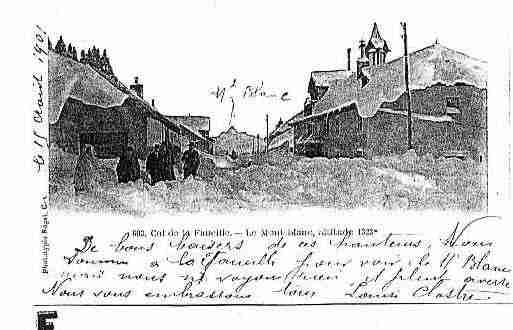 le 15 Août 1901
Mt Blanc
603. Col de la Faucille. — Le Mont Blanc, altitude 1323m
Phototypie
De bons baisers de ces hauteurs, Nous
sommes à la Faucille pour voir le Mt Blanc
mais nous ne voyons rien il pleut à verse
Nous vous embrassons tous Louis
E